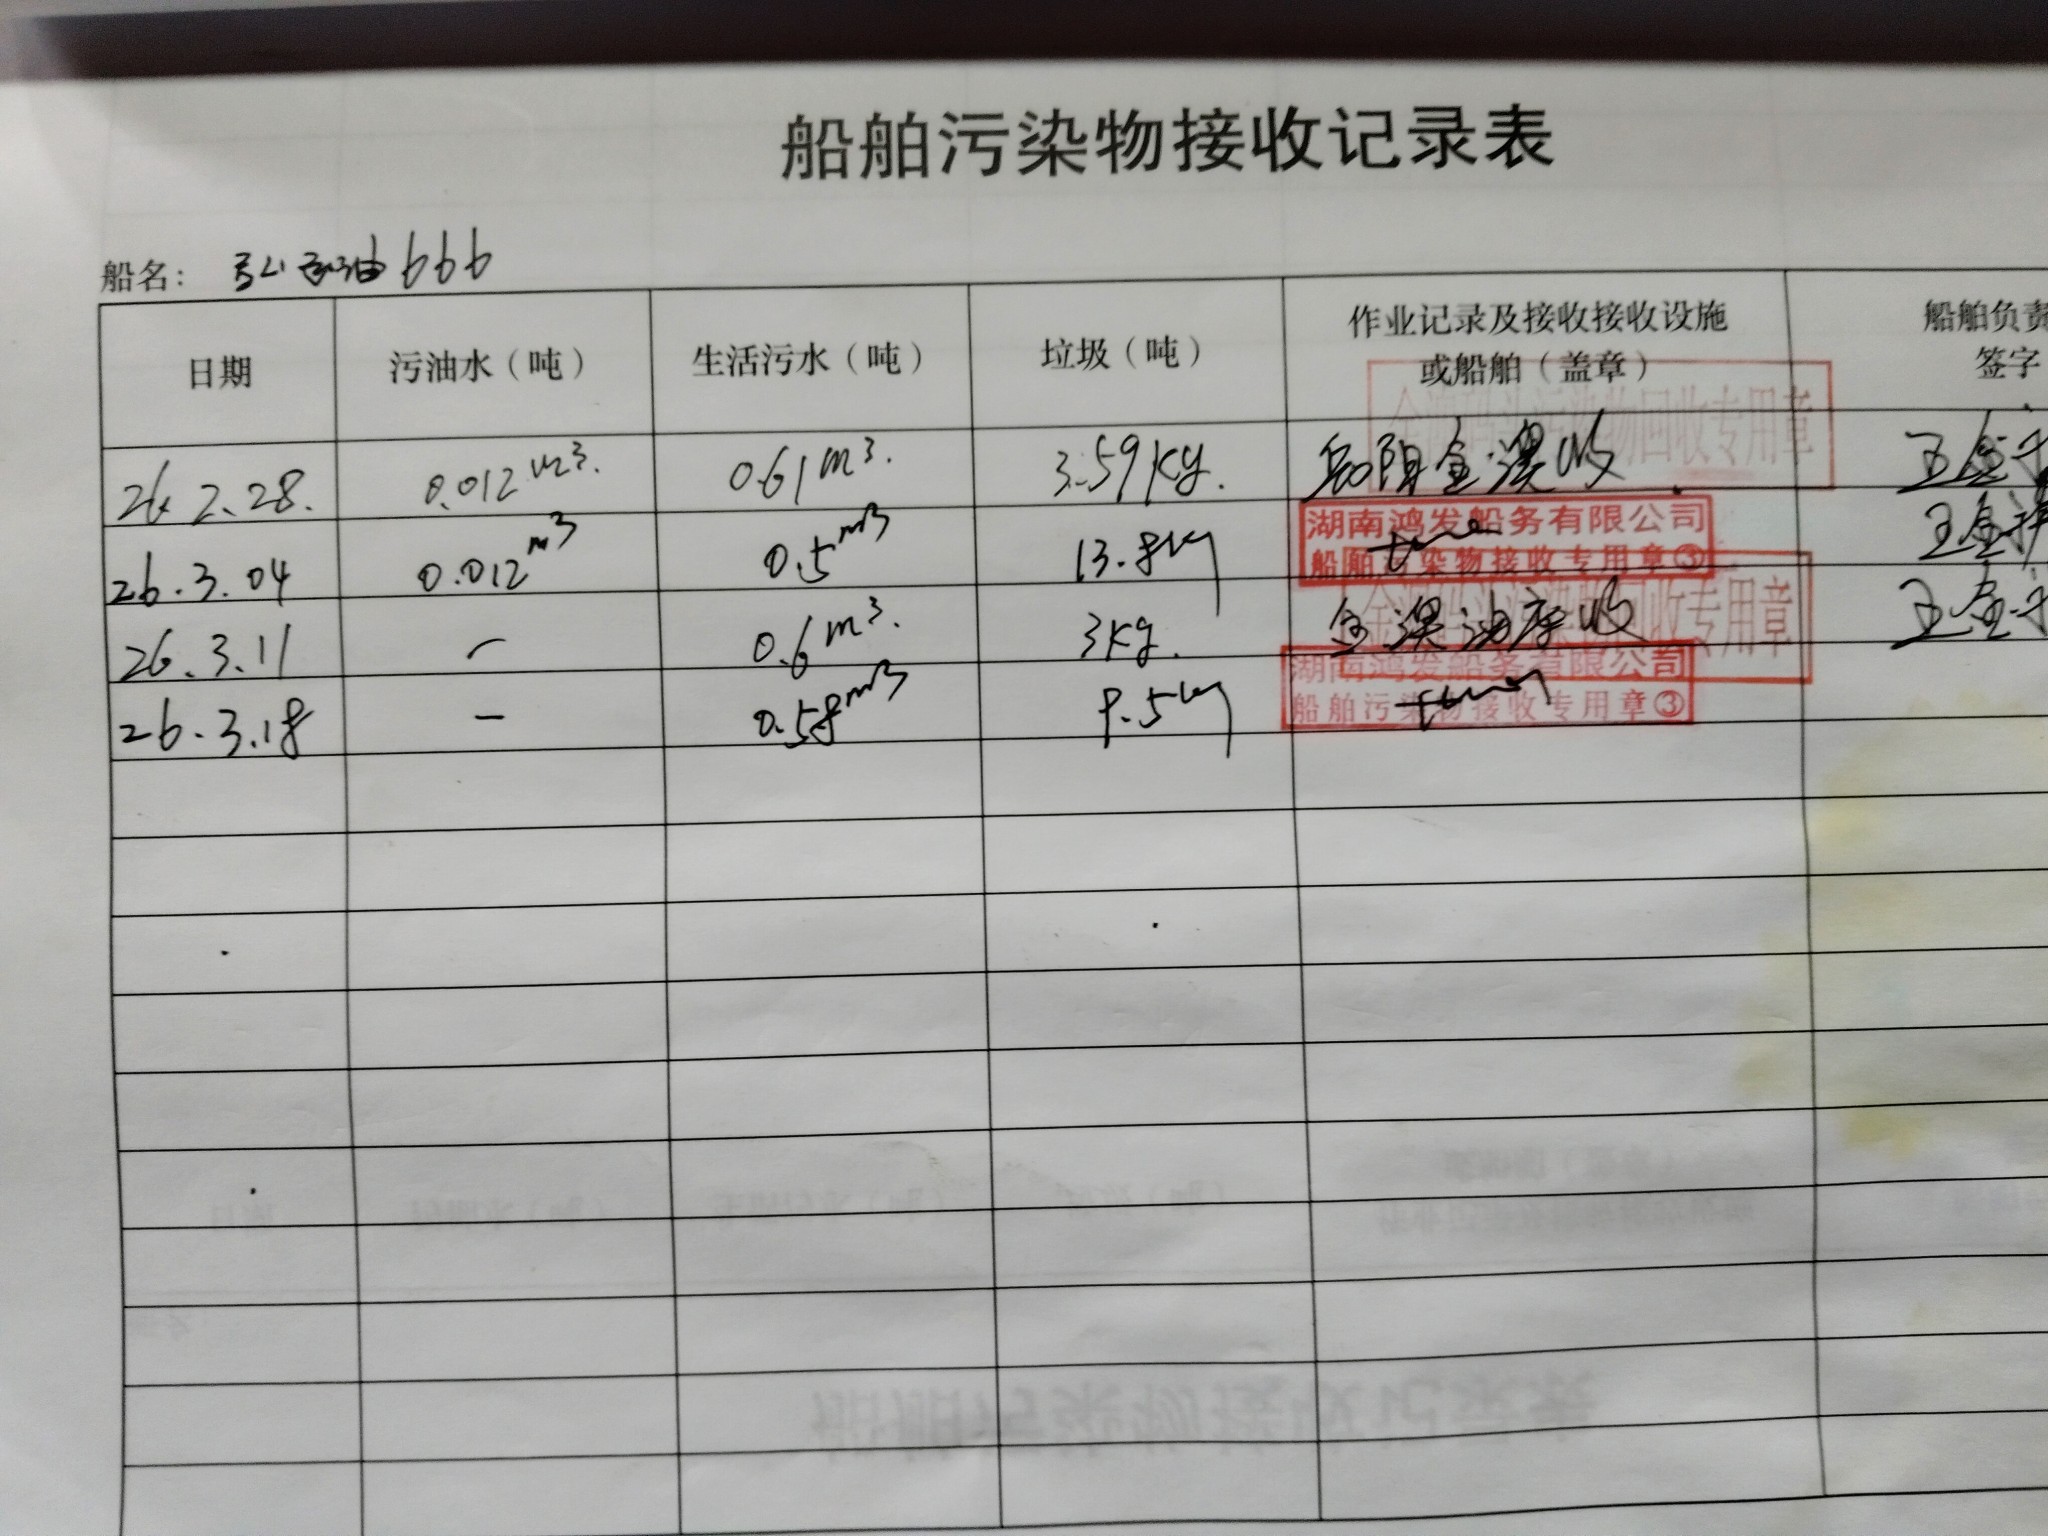 船舶污染物接收记录表
船名： 油666
日期 污油水（吨） 生活污水（吨） 垃圾（吨） 作业记录及接收接收设施或船舶（盖章） 船舶负责 签字
26.2.28. 0.012m³. 0.61m³. 3.59kg. 岳阳金澳收 王金
金澳码头污染物回收专用章
26.3.04 0.012m³ 0.5m³ 13.8kg 王金
湖南鸿发船务有限公司
船舶污染物接收专用章③
26.3.11 - 0.6m³. 3kg. 金澳油库收 王金
金澳码头污染物回收专用章
26.3.18 - 0.58m³ 9.5kg
湖南鸿发船务有限公司
船舶污染物接收专用章③